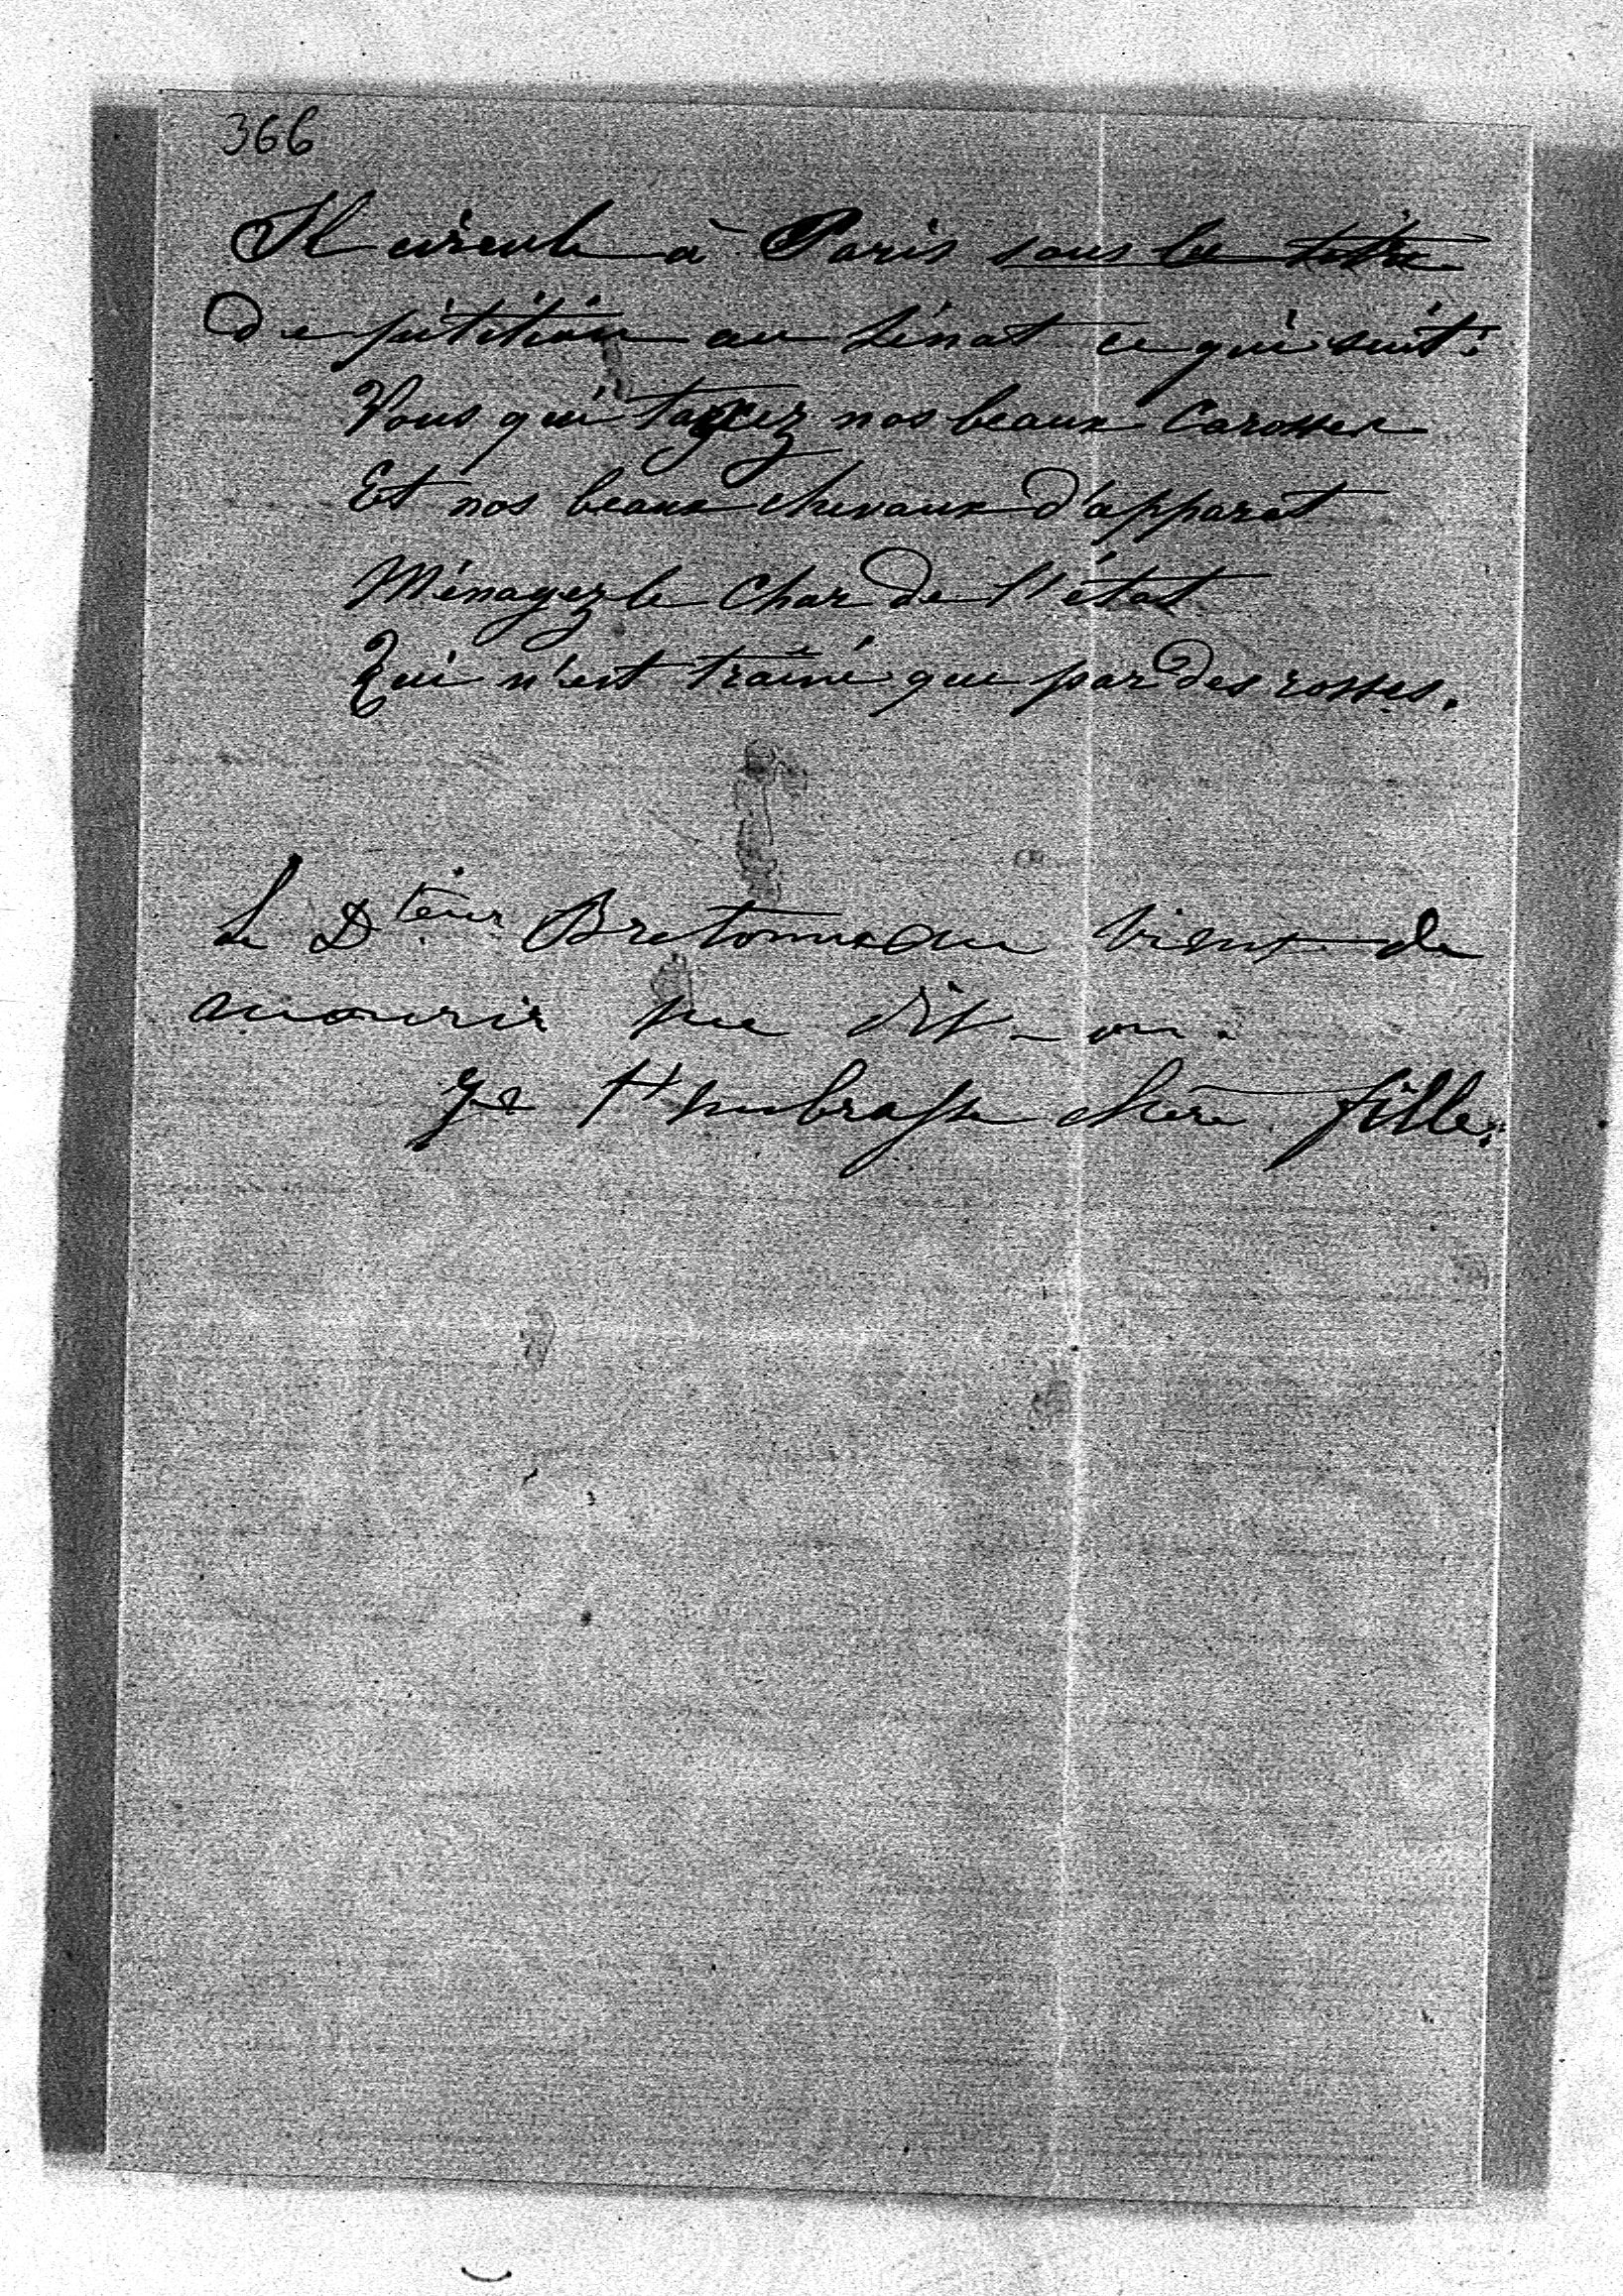 366
Il circule à Paris sous le titre
de pétition au Sénat ce qui suit:
Vous qui taxez nos beaux Carosses
Et nos beaux chevaux d'apparat
Ménagez le Char de l'état
Qui n'est trainé que par des rosses.
Le Dteur Bretonneau vient de
mourir me dit-on.
Je t'embrasse chère fille.